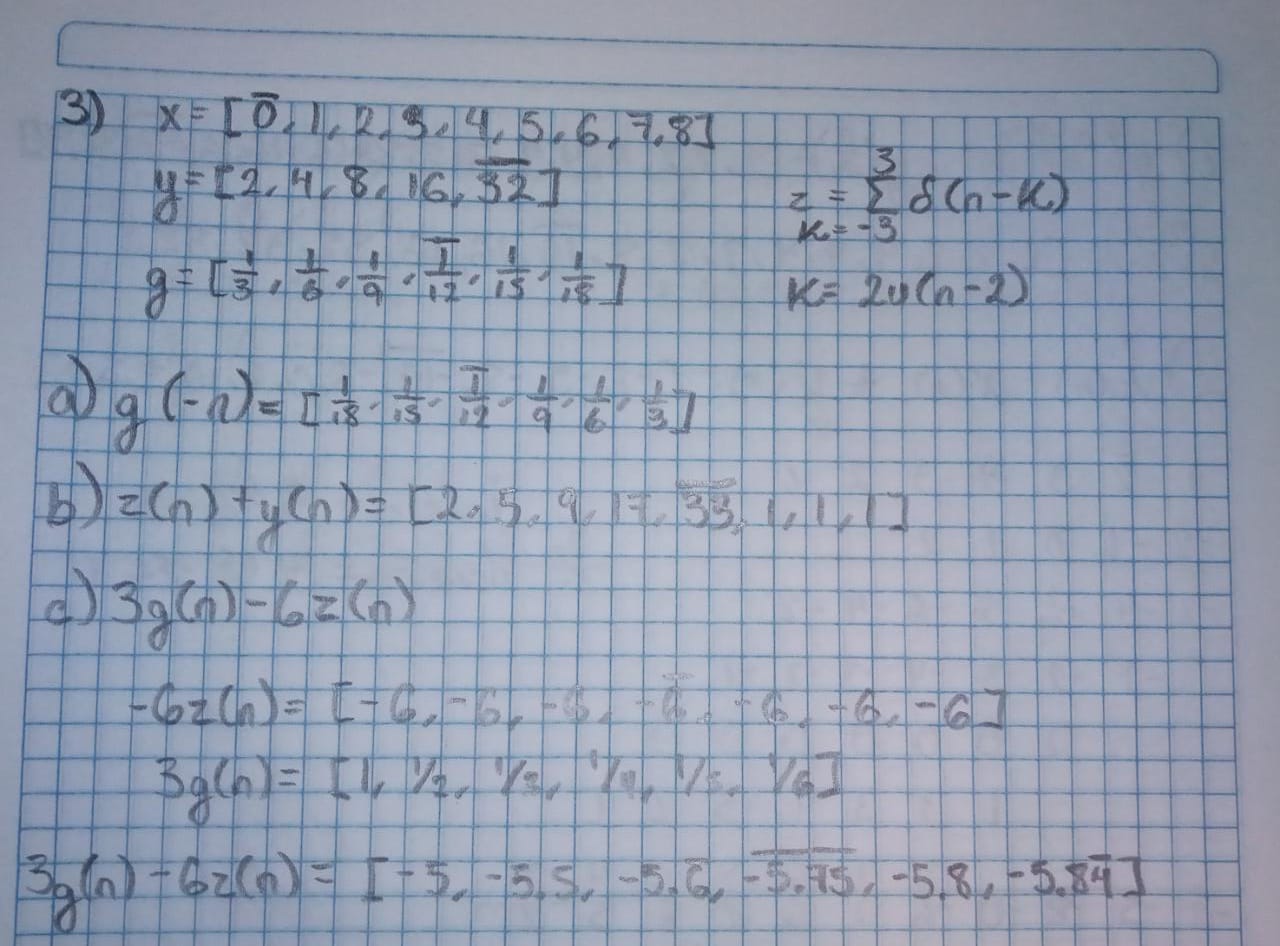 3) x = [0̅, 1, 2, 3, 4, 5, 6, 7, 8]
y = [2, 4, 8, 16, 3̅2̅]
z = Σ_{K=-3}^{3} δ(n-K)
g = [1/3, 1/6, 1/9, 1̅/12, 1/15, 1/18]
K = 2u(n-2)
a) g(-n) = [1/18, 1/15, 1̅/12, 1/9, 1/6, 1/3]
b) z(n) + y(n) = [2, 5, 9, 17, 3̅3̅, 1, 1, 1]
c) 3g(n) - 6z(n)
-6z(n) = [-6, -6, -6, -6̅, -6, -6, -6]
3g(n) = [1, 1/2, 1/3, 1/4, 1/5, 1/6]
3g(n) - 6z(n) = [-5, -5.5, -5.6̅, -̅5̅.̅7̅5̅, -5.8, -5.84̅]